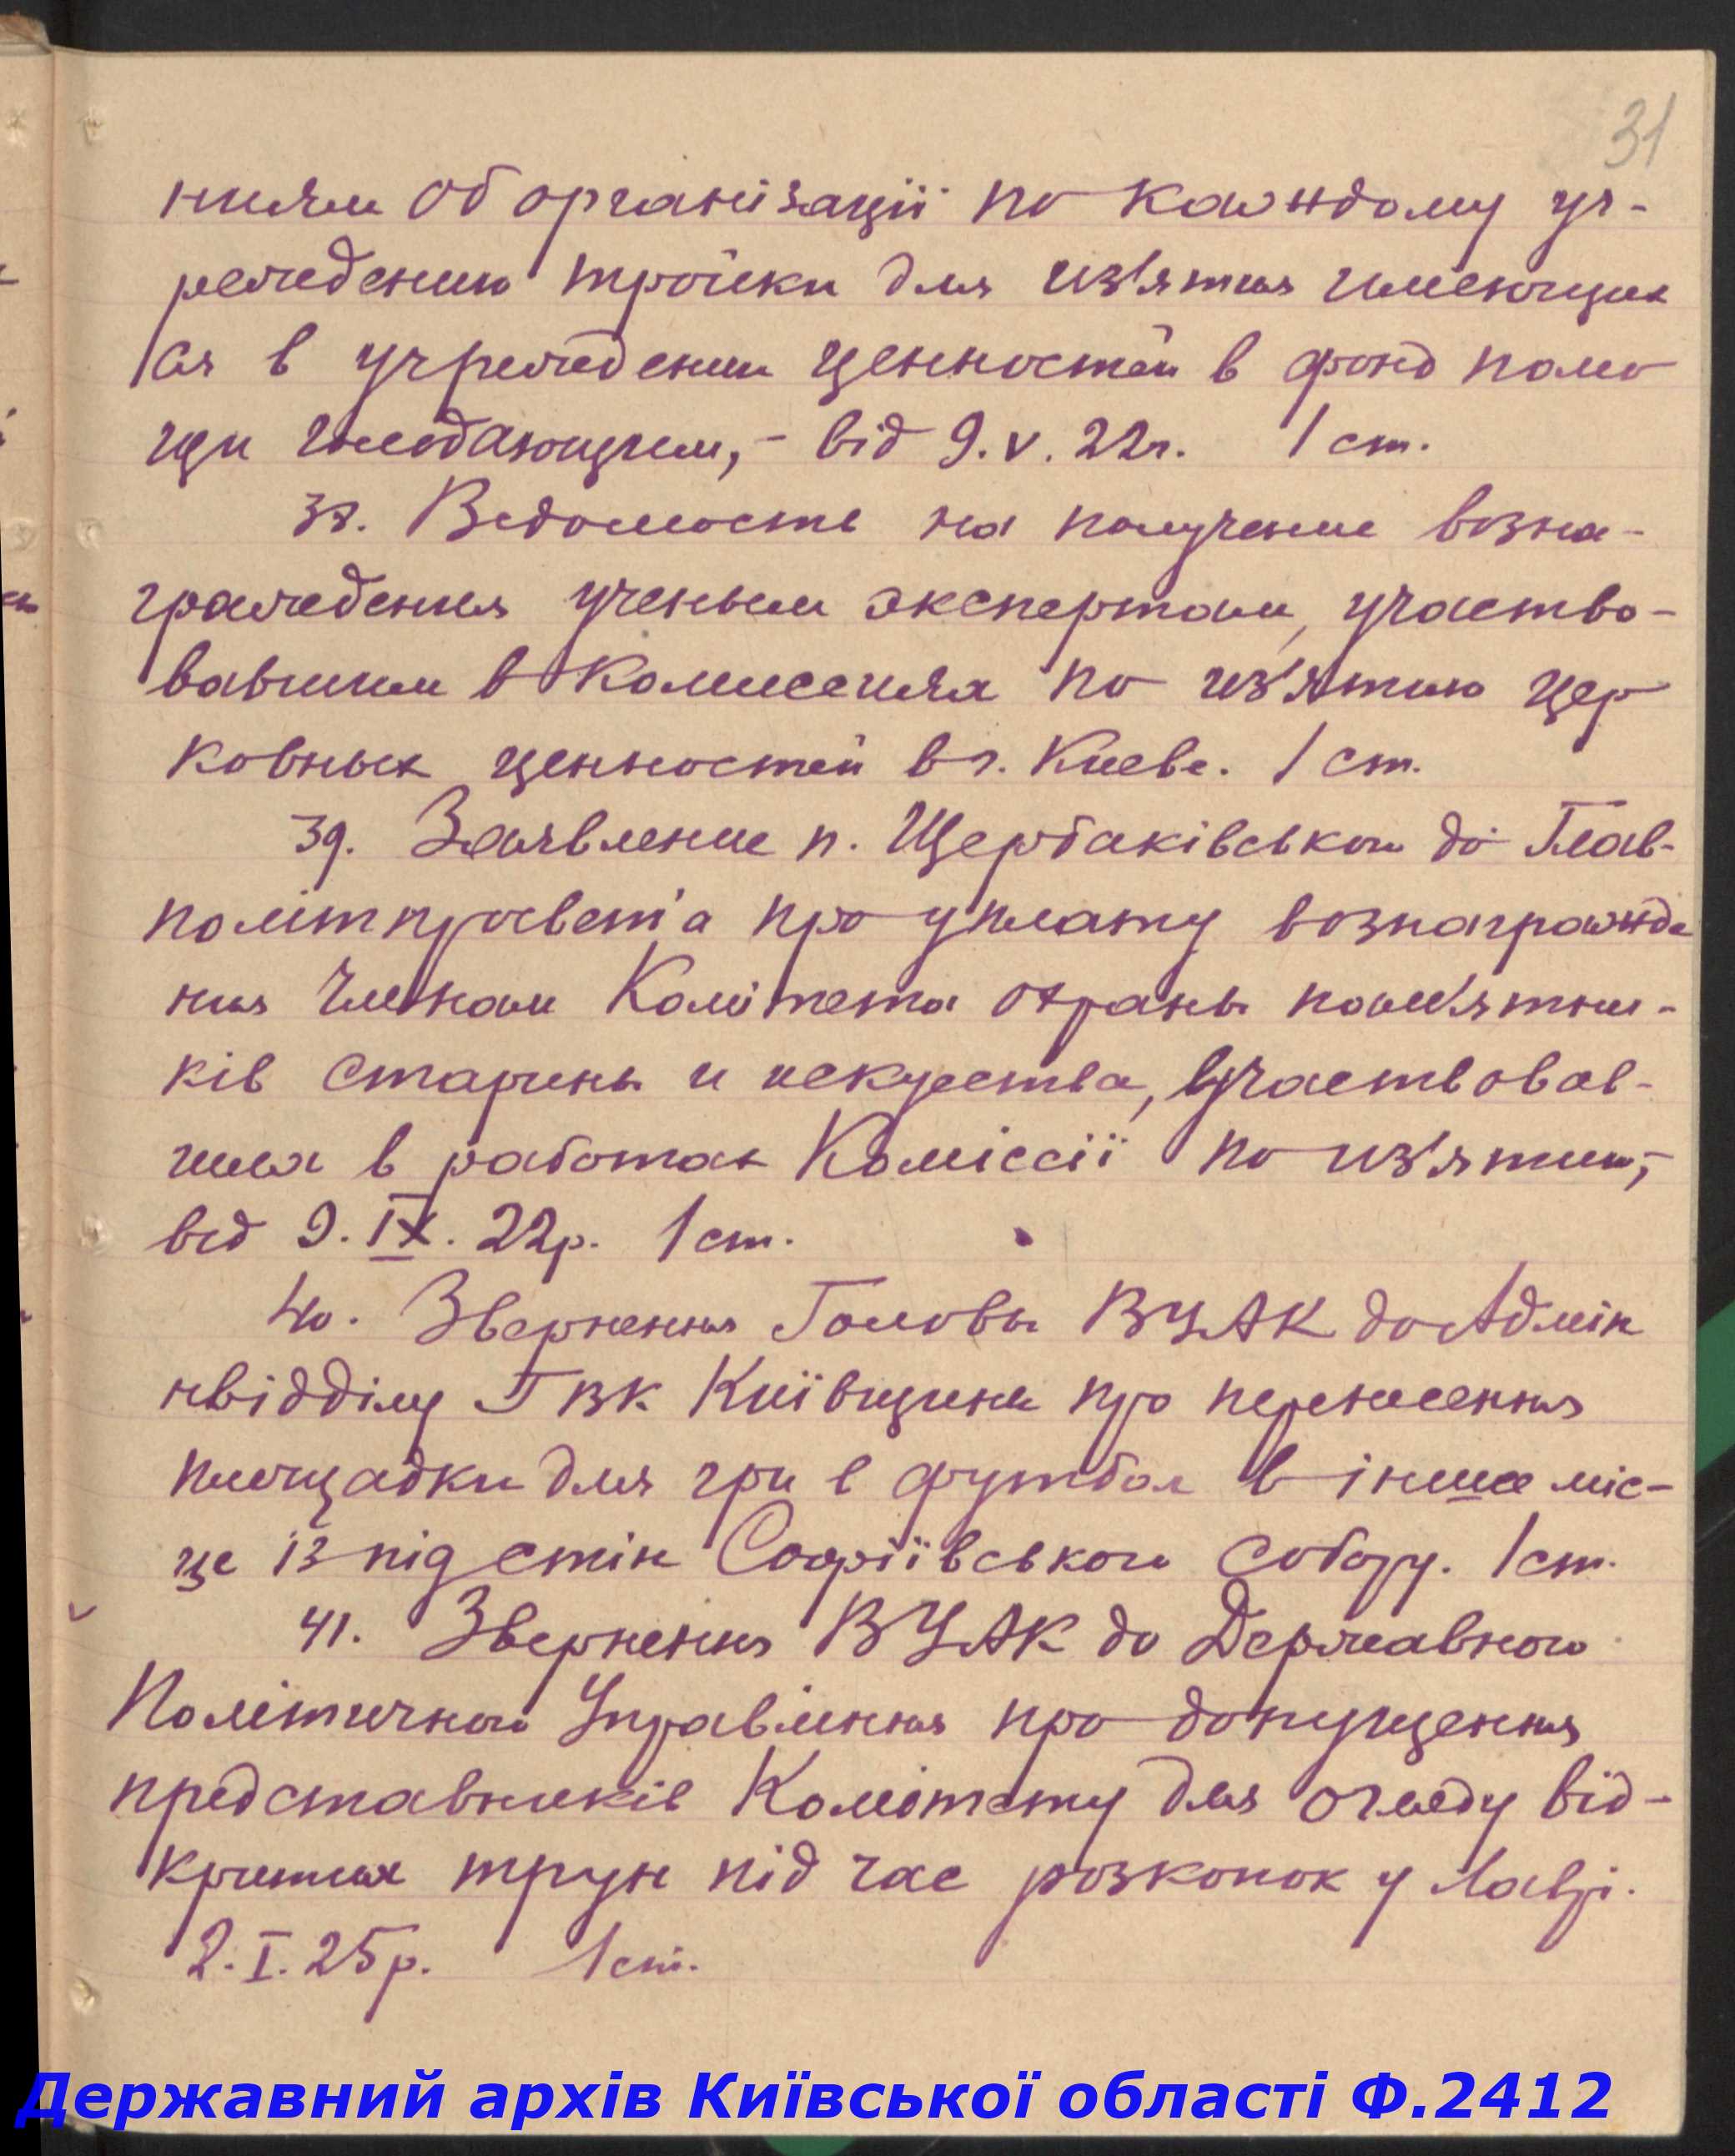 31
ниям об організації по каждому уч-
реждению тройки для из'ятия имеющих
ся в учреждении ценностей в фонд помо
щи голодающим, - від 9.V.22г. 1 ст.
38. Ведомость на получение возна-
граждения ученым экспертам, участво-
вавшим в Комиссиях по из'ятию цер
ковных ценностей в г. Киеве. 1 ст.
39. Заявление п. Щербаківського до Глав-
політпросвет'а про уплату вознагражде
ния членам Комітета охраны пам'ятни-
ків старины и искусства, участвовав-
ших в работах Коміссії по из'ятию, -
від 9.IX.22р. 1 ст.
40. Звернення Голови ВУАК до Адмін
відділу ГВК Київщини про перенесення
площадки для гри в футбол в інше міс-
це із під стін Софіївського собору. 1 ст.
41. Звернення ВУАК до Державного
Політичного Управління про допущення
представників Комітету для огляду від-
критих трун під час розкопок у Лаврі.
2.I.25р. 1 ст.
Державний архів Київської області Ф.2412